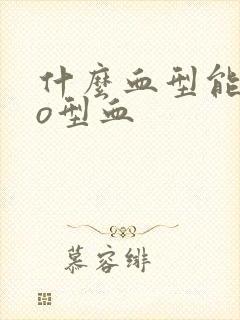 什麼血型能
o型血
慕容緋